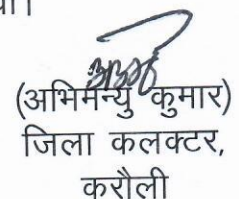 (अभिमन्यु कुमार)
जिला कलक्टर,
करौली